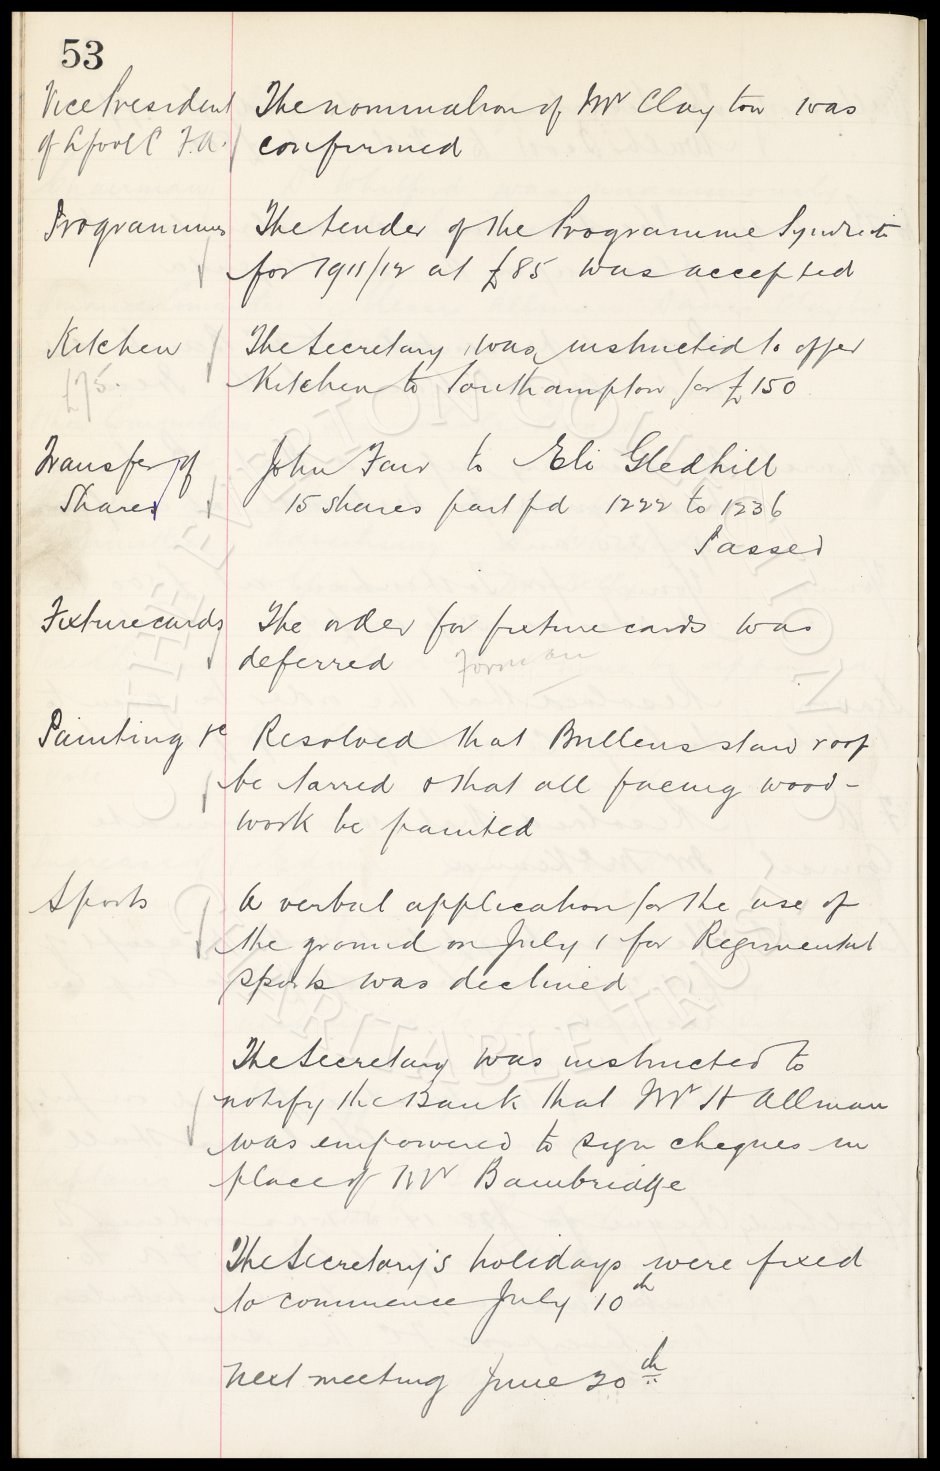 53
Vice President The nomination of Mr Clayton was
of Lpool C F.A. confirmed
Programmes The tender of the Programme Syndicate
for 1911/12 at £85 was accepted
Kitchen The Secretary was instructed to offer
£75. Kitchen to Southampton for £150
Transfer of John Fair to Eli Gledhill
Shares 15 shares part pd 1222 to 1236
Passed
Fixture cards The order for fixture cards was
deferred Forman
Painting &c Resolved that Bullens stand roof
be tarred & that all facing wood-
work be painted
Sports A verbal application for the use of
the ground on July 1 for Regimental
sports was declined
The Secretary was instructed to
notify the Bank that Mr H Allman
was empowered to sign cheques in
place of Mr Bainbridge
The Secretary's holidays were fixed
to commence July 10th
Next meeting June 20th
THE EVERTON COLLECTION
CHARITABLE TRUST